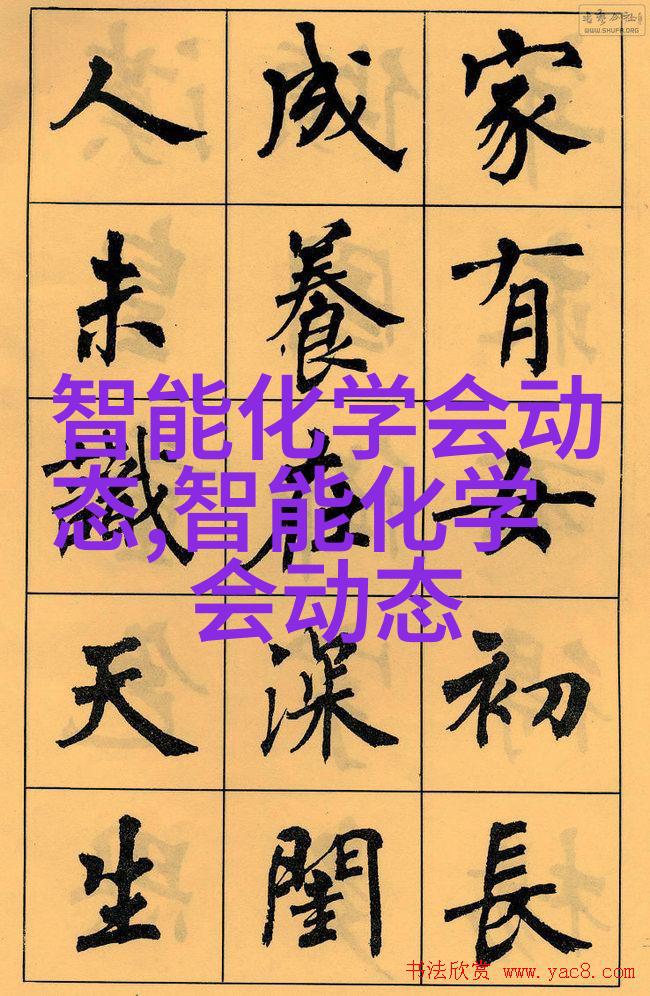 家有女初長
成養在深閨
人未識天生
智能化学会动
态,智能化学
会动态
WWW.SHUFA.ORG
书法欣赏 www.yac8.com